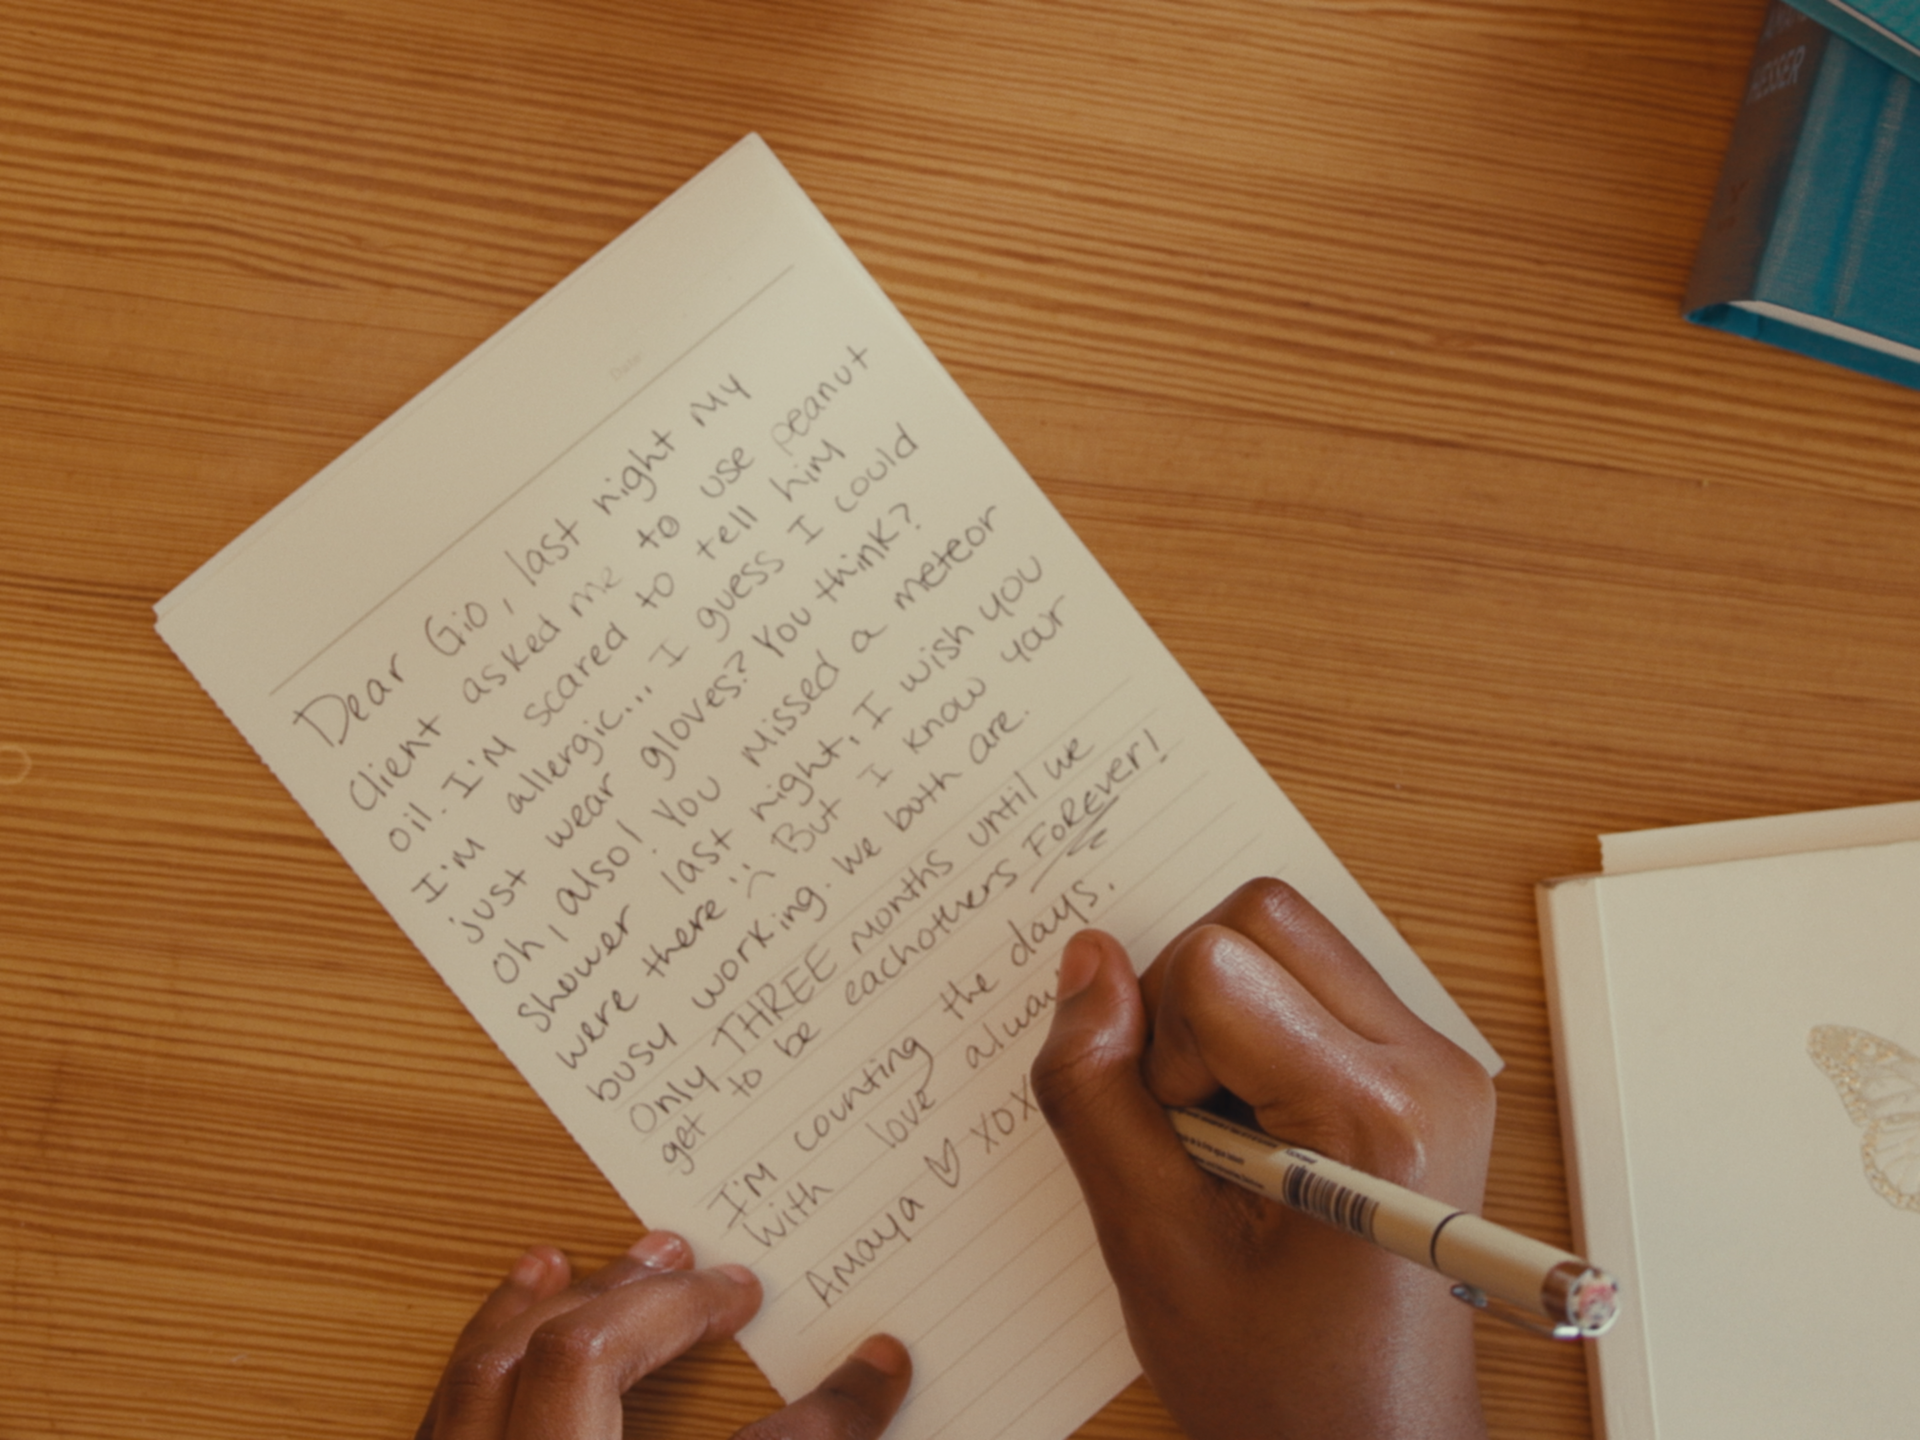 Date:
Dear Gio, last night my
client asked me to use peanut
oil. I'm scared to tell him
I'm allergic... I guess I could
just wear gloves? You think?
Oh, also! You missed a meteor
shower last night, I wish you
were there :( But I know your
busy working. We both are.
Only THREE months until we
get to be eachothers FOREver!
I'm counting the days.
With love alway
Amaya ♡ XOX
HESSER